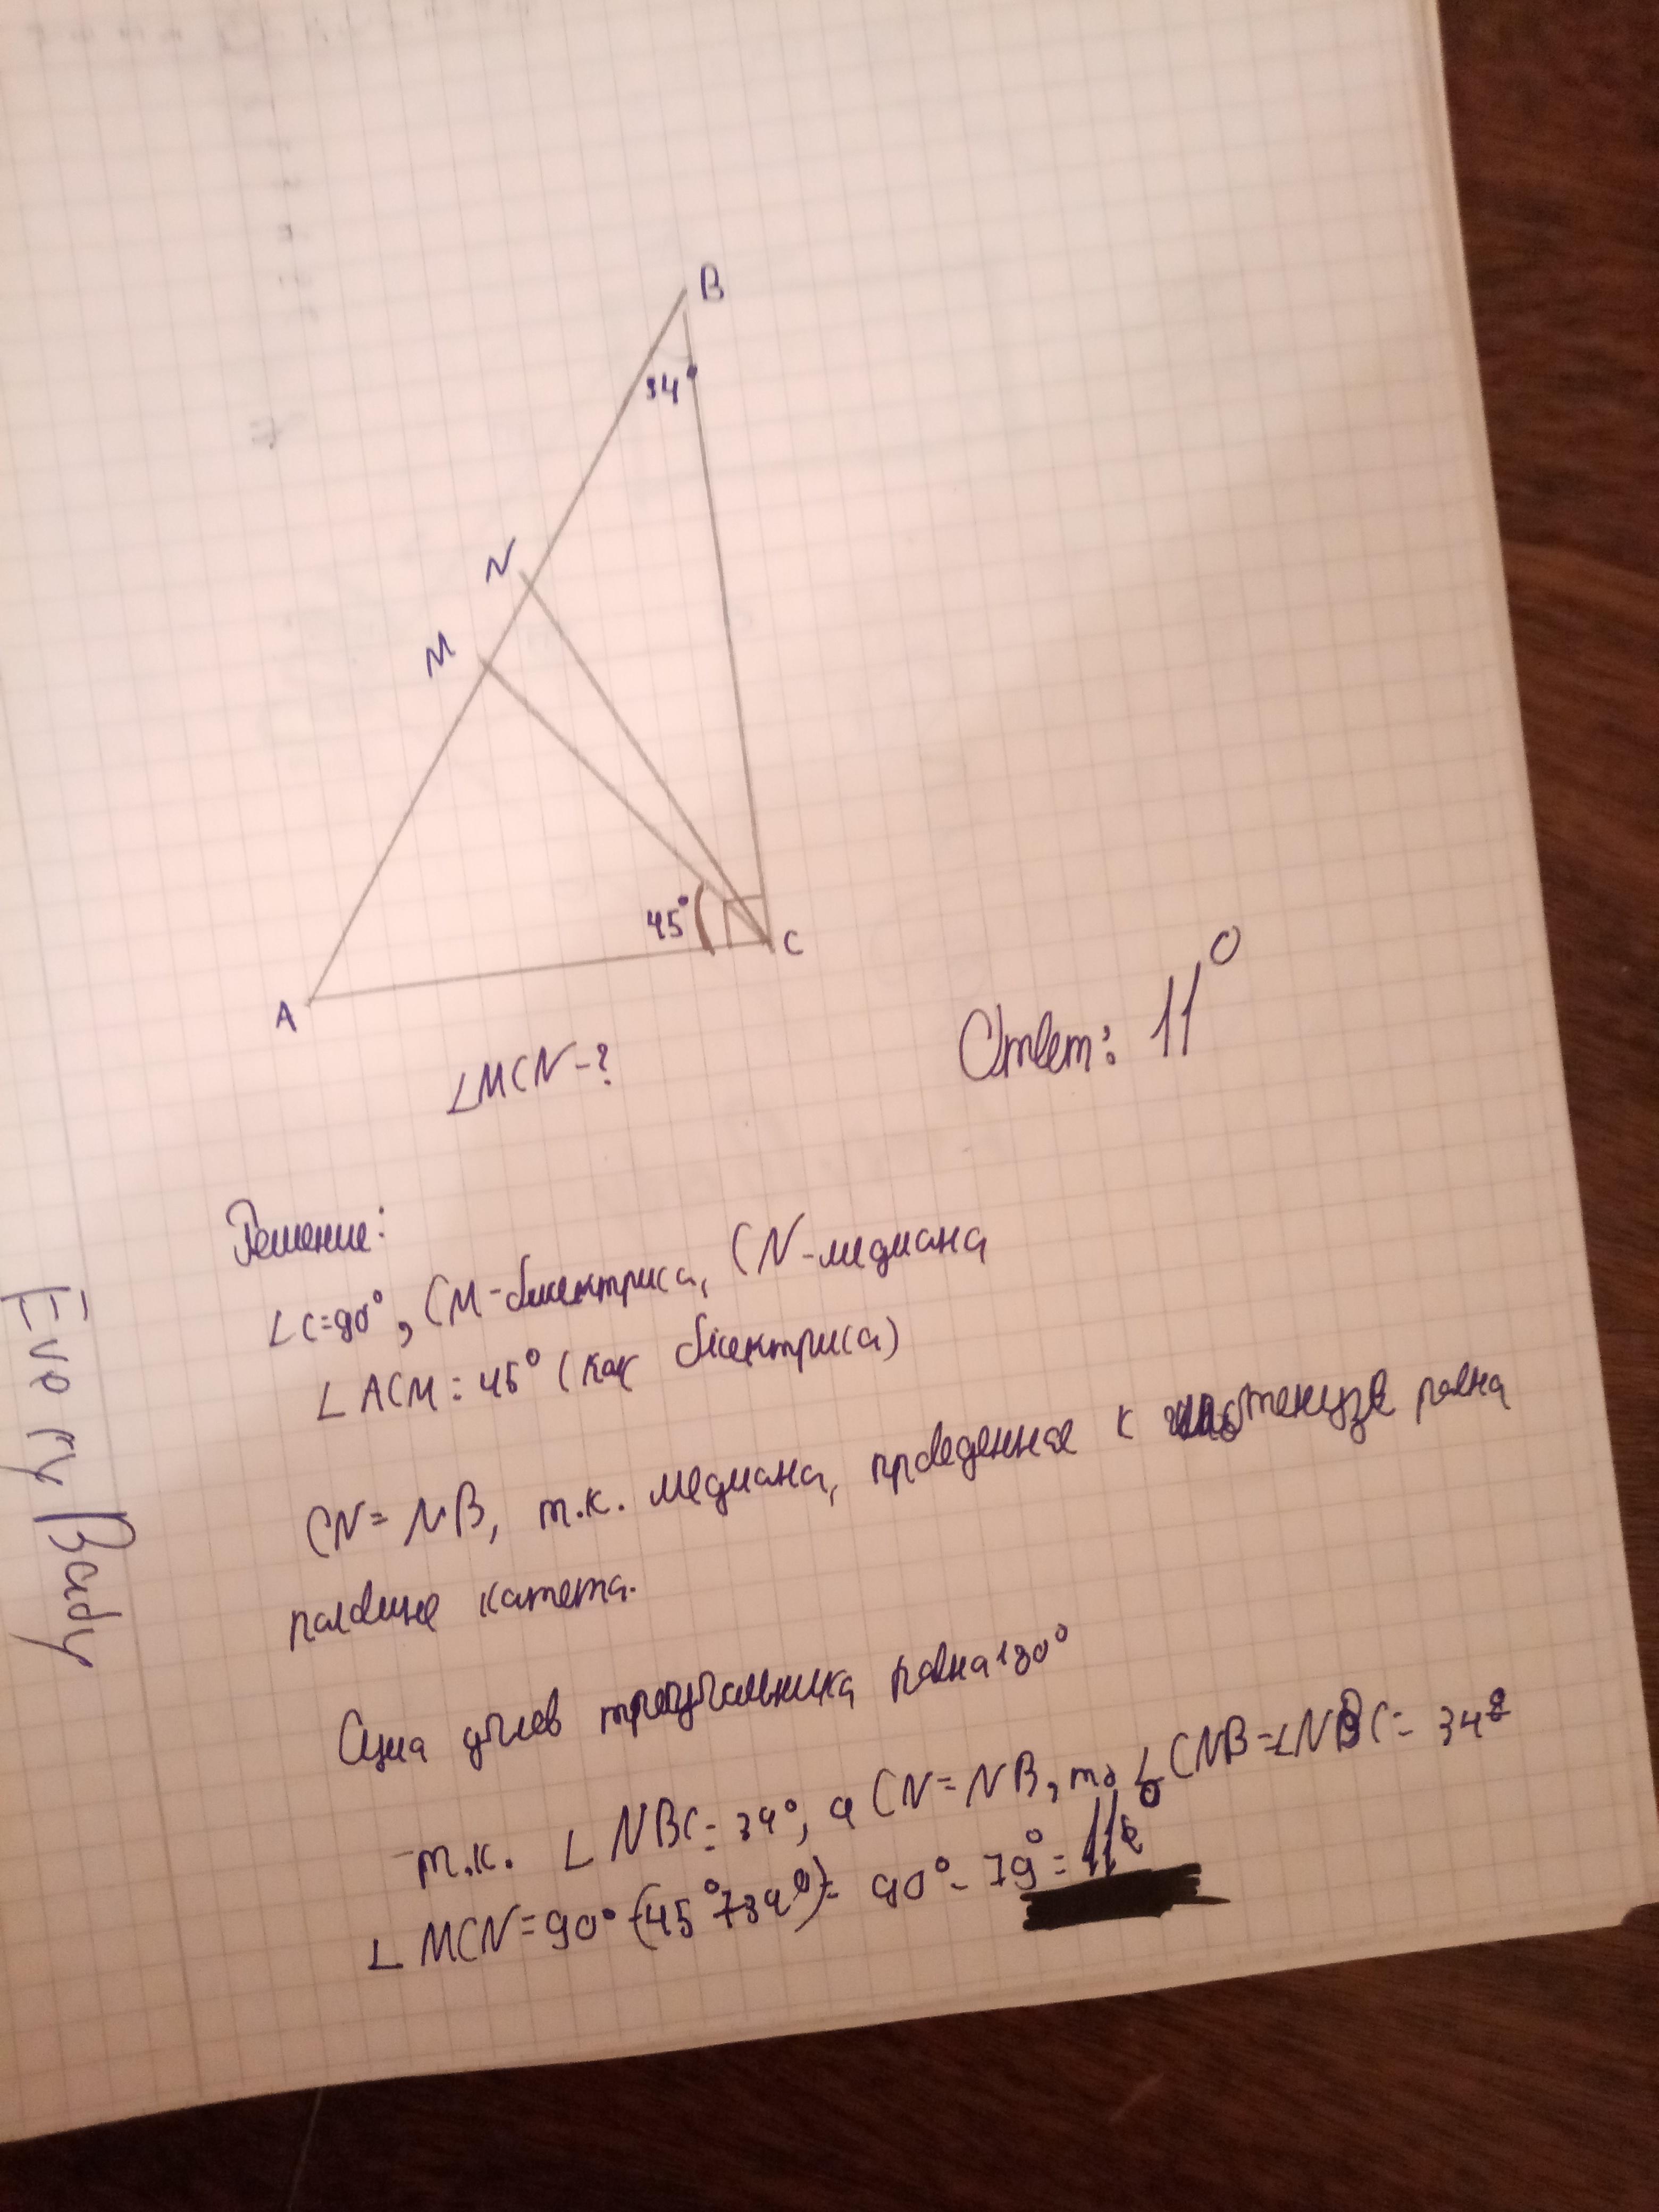 B
34°
N
M
45°
C
A
∠MCN-?
Ответ: 11°
Решение:
∠C=90°, CM-биектриса, CN-медиана
∠ACM=45° (как биектриса)
CN=NB, т.к. медиана, проведенная к гипотенузе равна
половине катета.
Сума углов треугольника равна 180°
-т.к. ∠NBC=34°, а CN=NB, то ∠CNB=∠NBC=34°
∠MCN=90°-(45°+34°)=90°-79°=11°
Every Bady